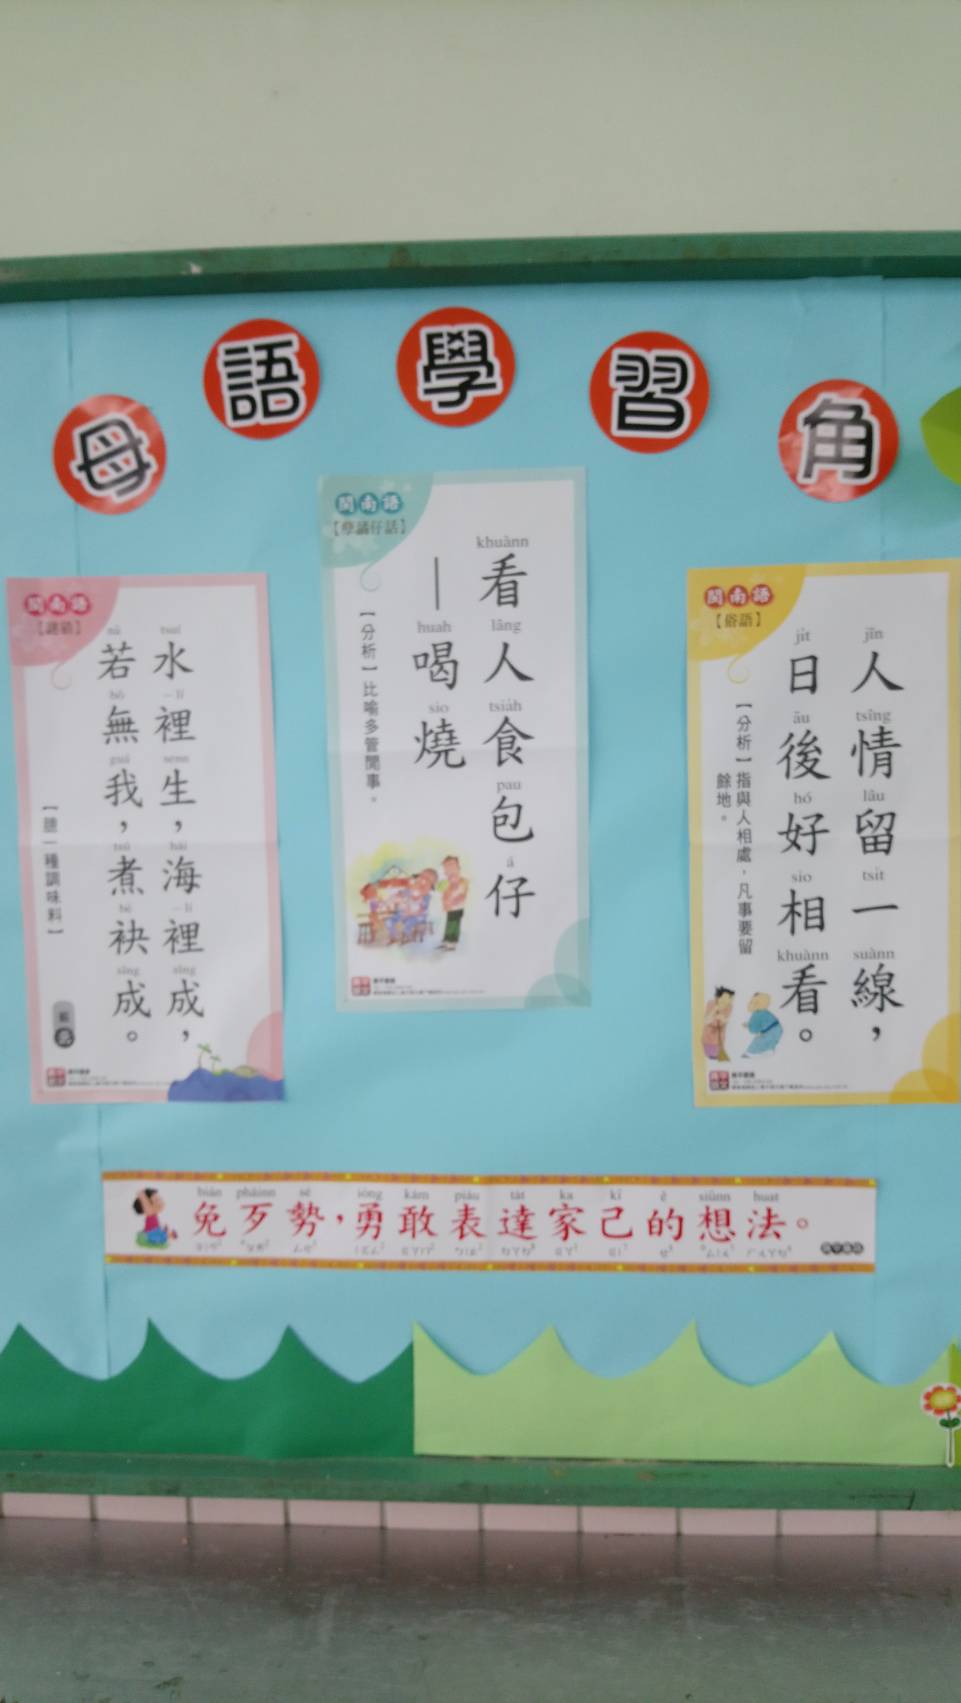 母語學習角
閩南語
【謎猜】
tsuí – lí senn hái – lí sîng
水裡生，海裡成，
nā bô guá tsú bē sîng
若無我，煮袂成。
【臆一種調味料】
閩南語
【學講仔話】
khuànn lâng tsia̍h pau á
看人食包仔
huah sio
—喝燒
【分析】比喻多管閒事。
閩南語
【俗語】
jîn tsîng lâu tsi̍t suànn
人情留一線，
ji̍t āu hó sio khuànn
日後好相看。
【分析】指與人相處，凡事要留
餘地。
免歹勢，勇敢表達家己的想法。